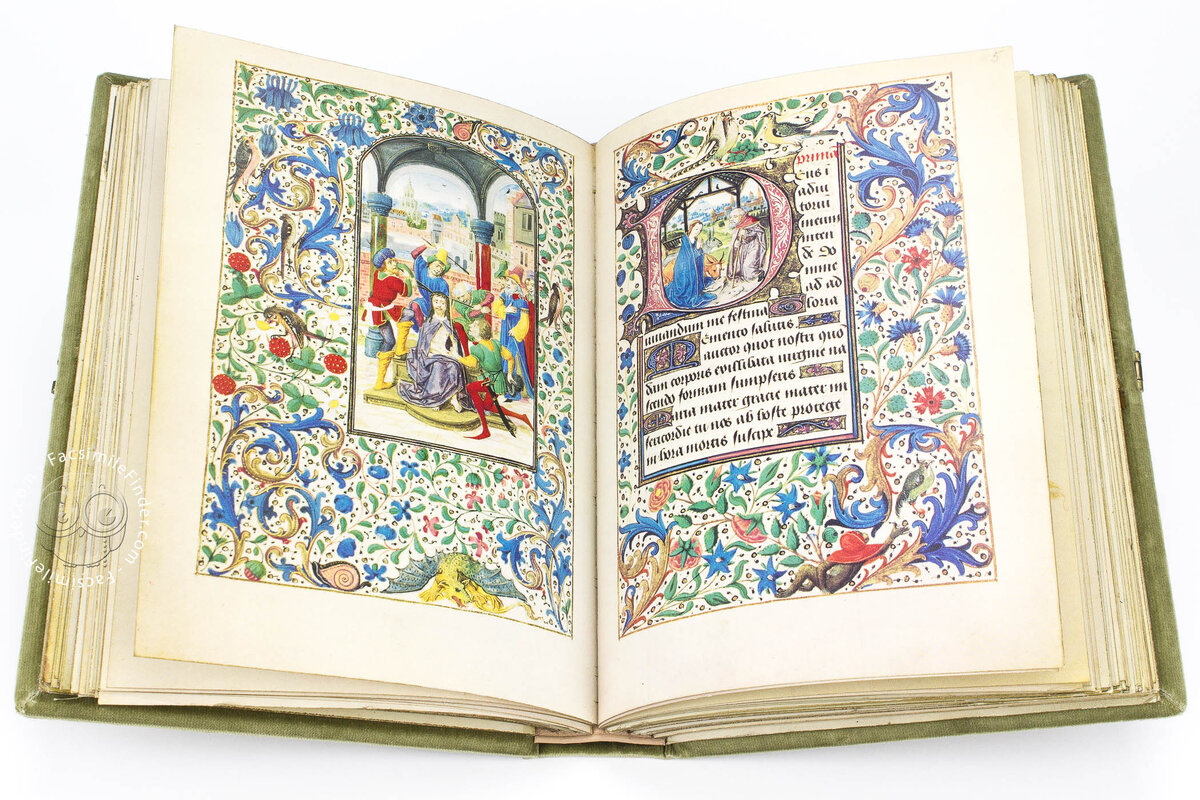 5
prima
Deus i
adiu
toriu
meum
inten
de Do
mine
ad ad
Gloria
iuuandum me festina
Memento salutis
auctor quot nostri quo
dam corporis exillibata uirgine na
scendo formam sumpseris
Maria mater gracie mater mi
sericordie tu nos ab hoste protege
in hora mortis suscipe
FacsimileFinder.com